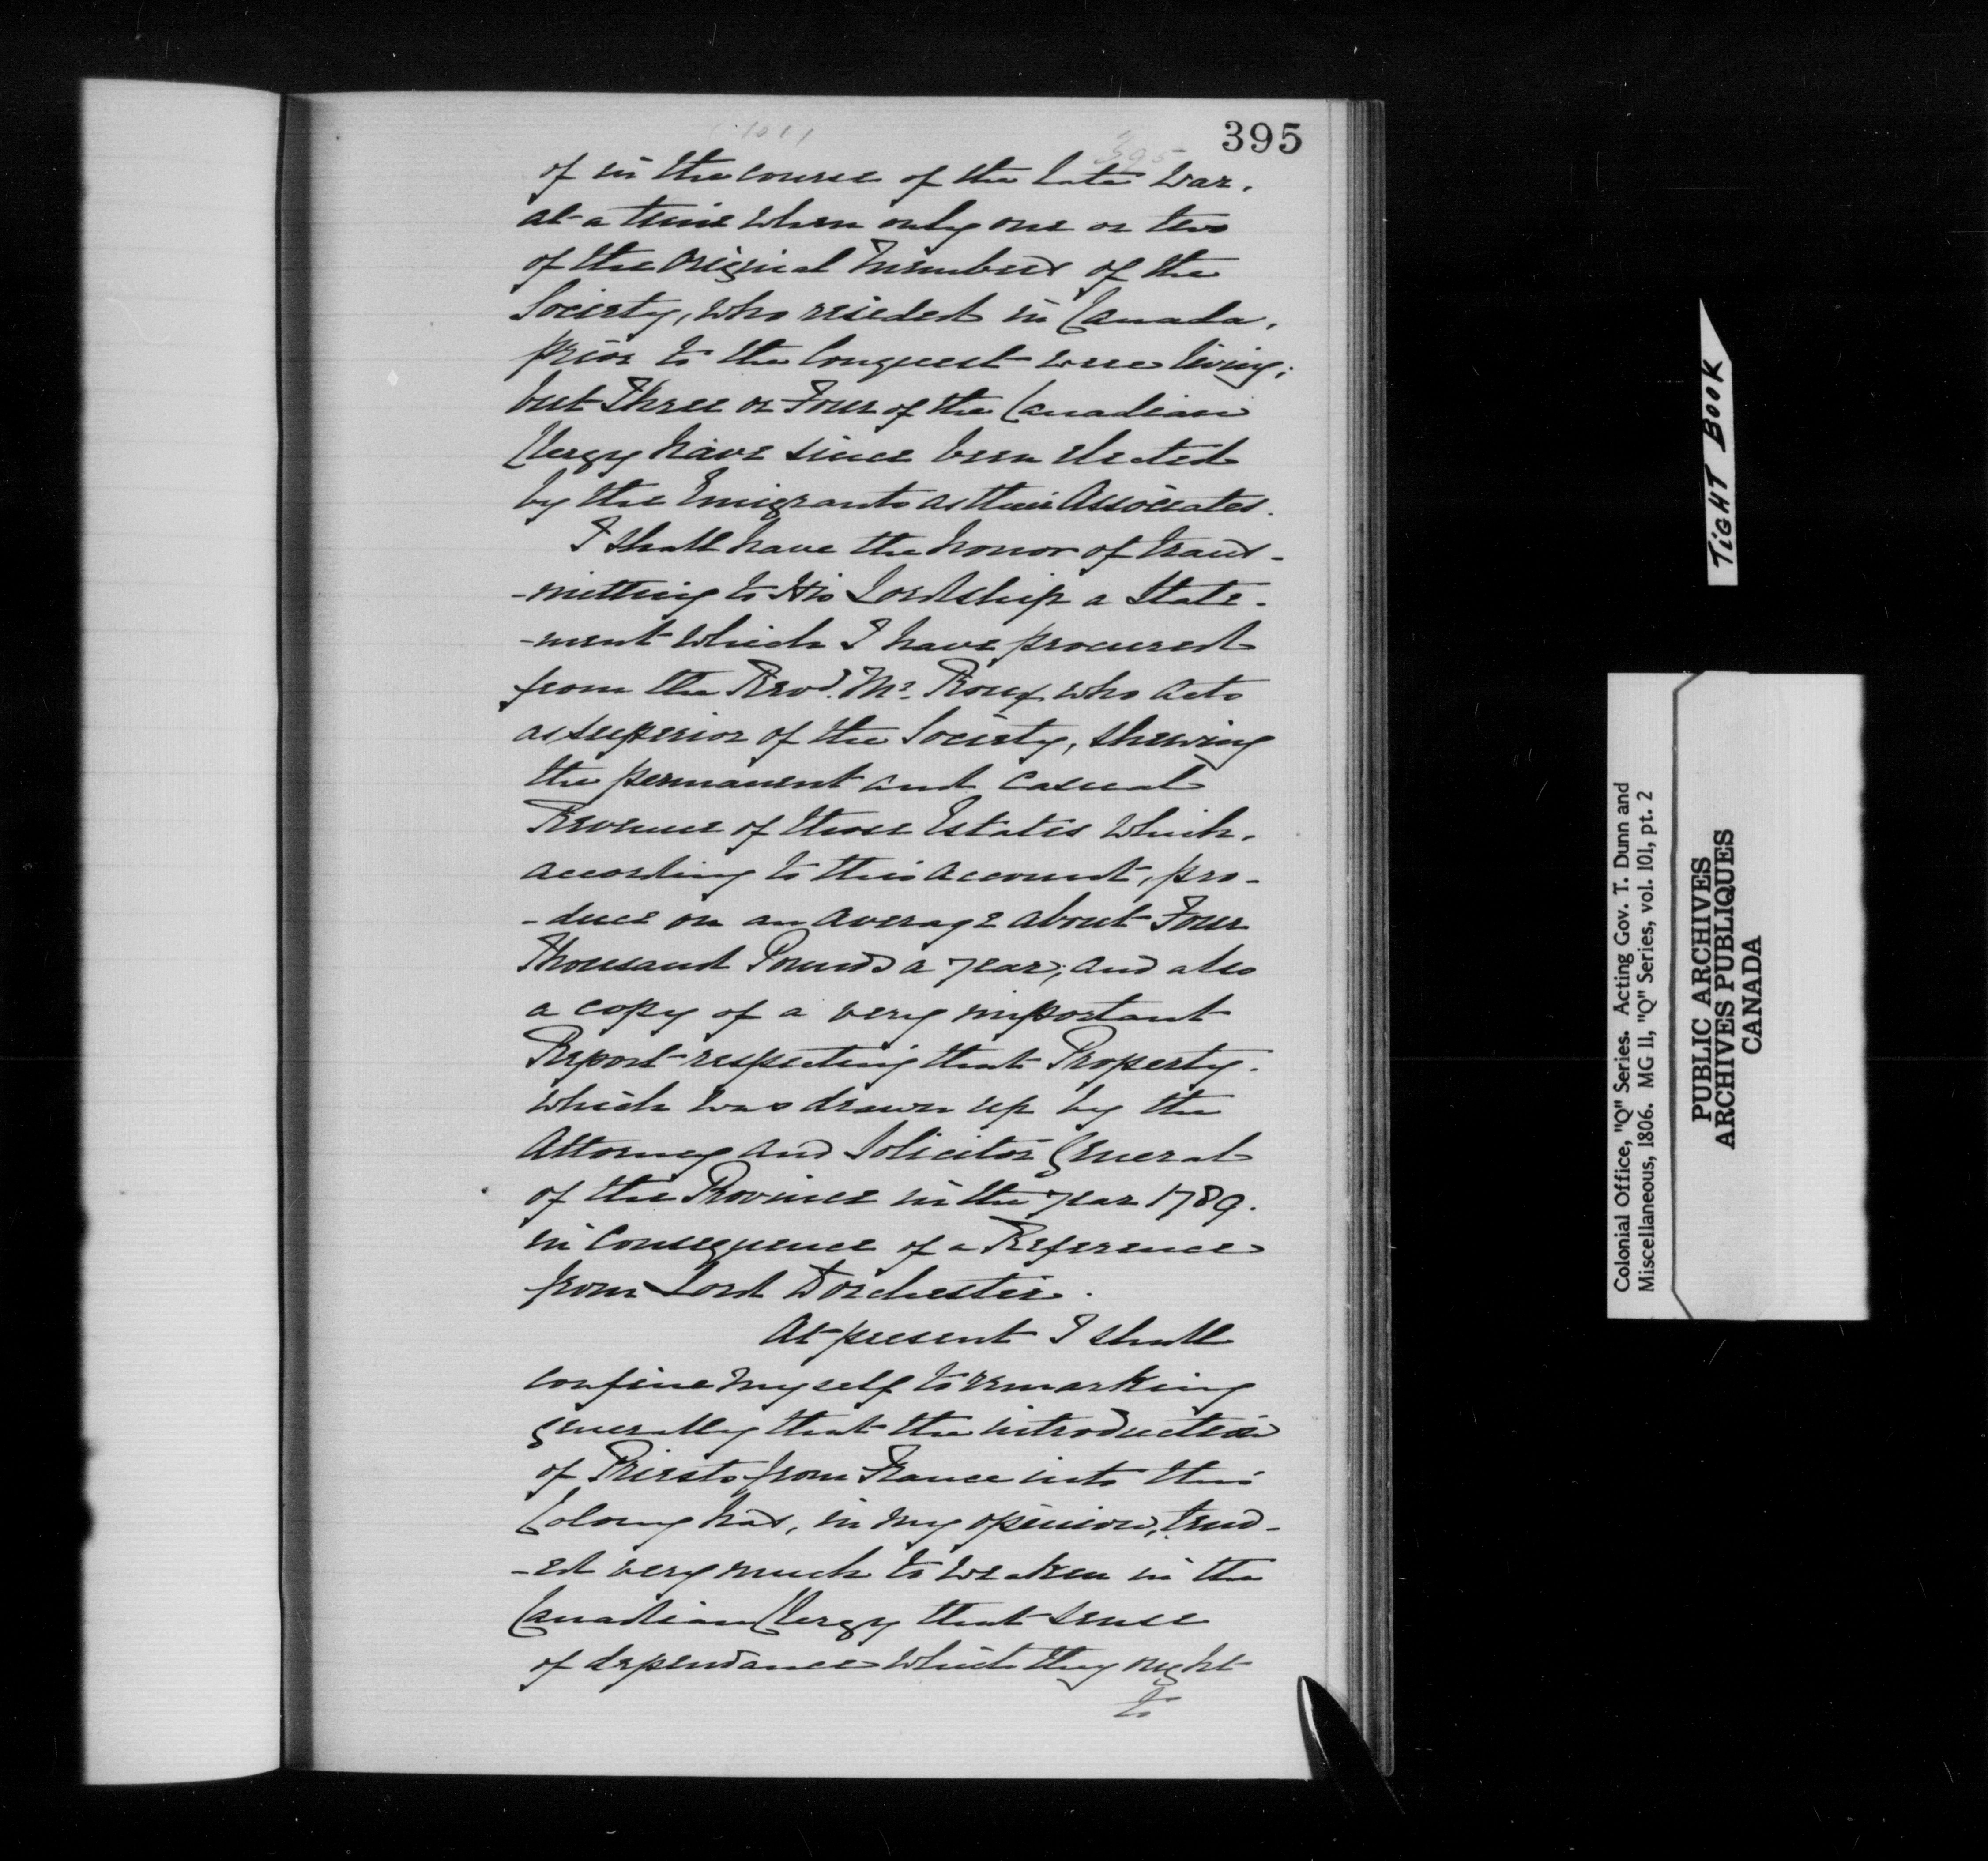 395
395
of in the course of the late War,
at a time when only one or two
of the Original Members of the
Society, who resided in Canada,
prior to the Conquest were living;
but Three or Four of the Canadian
Clergy have since been elected
by the Emigrants as their Associates.
I shall have the honor of trans-
-mitting to His Lordship a State-
-ment which I have procured
from the Revd. Mr. Roux, who acts
as Superior of the Society, shewing
the permanent and casual
Revenue of those Estates which,
according to this account, pro-
-duce on an average about Four
Thousand Pounds a year; and also
a copy of a very important
Report respecting that Property.
which was drawn up by the
Attorney and Solicitor General
of the Province in the year 1789.
in consequence of a Reference
from Lord Dorchester.
At present I shall
confine myself to remarking
generally that the introduction
of Priests from France into this
Colony has, in my opinion, tend-
-ed very much to weaken in the
Canadian Clergy that sense
of dependance which they ought
to
TIGHT BOOK
Colonial Office, "Q" Series. Acting Gov. T. Dunn and
Miscellaneous, 1806. MG 11, "Q" Series, vol. 101, pt. 2
PUBLIC ARCHIVES
ARCHIVES PUBLIQUES
CANADA